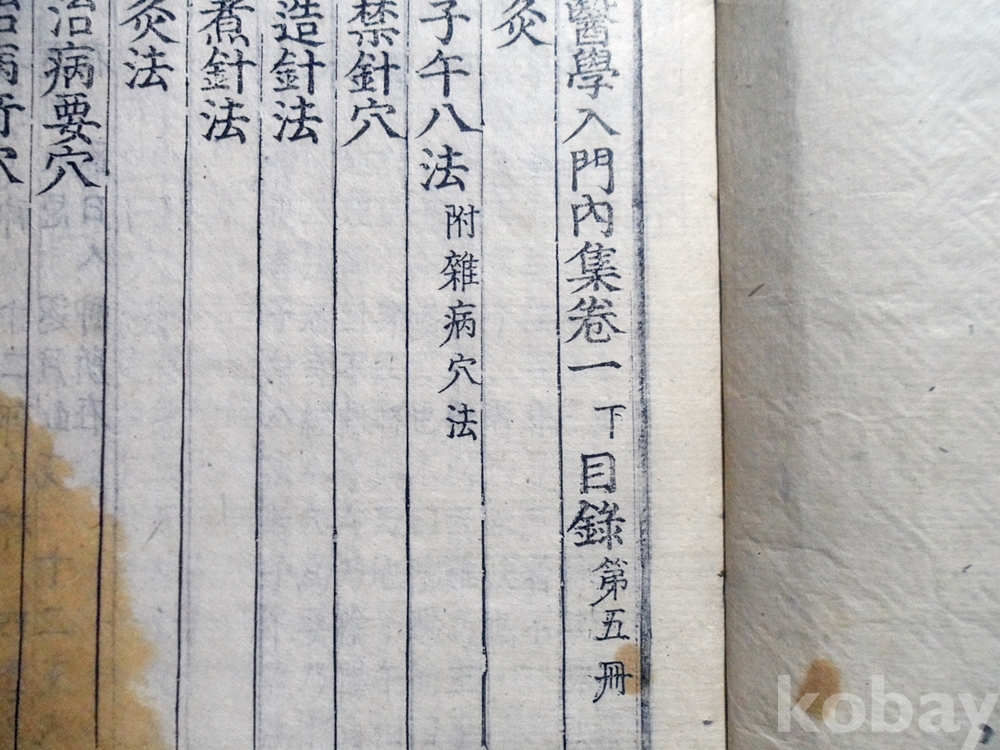 醫學入門內集卷一 下 目錄 第五冊
灸
子午八法 附雜病穴法
禁針穴
造針法
煮針法
灸法
治病要穴
治病奇穴
kobay